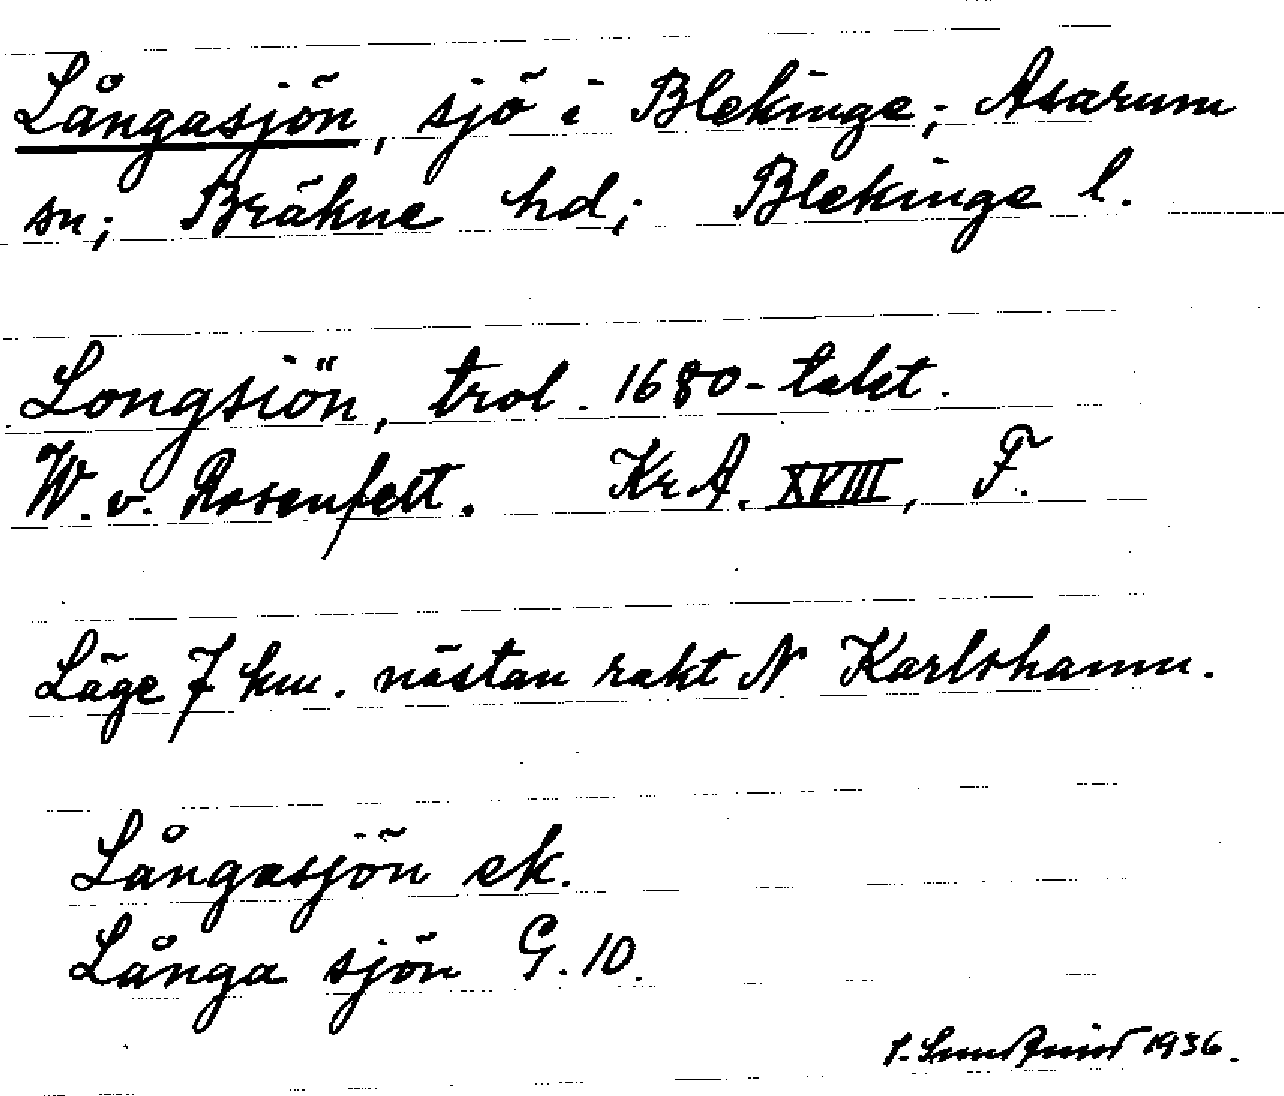 Långasjön, sjö i Blekinge; Asarum
sn; Bräkne hd; Blekinge l.
Longsiön, trol. 1680-talet.
W. v. Rosenfelt. KrA. XVIII, F.
Läge 7 km. nästan rakt N Karlshamn.
Långasjön ek.
Långa sjön G. 10.
1936.